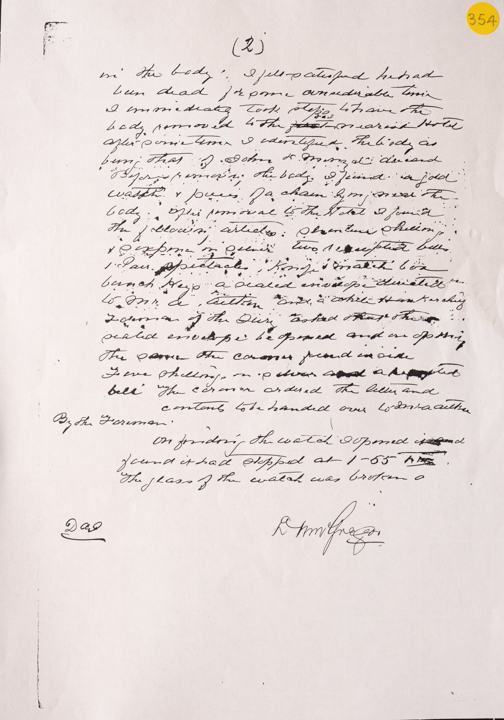 354
(2)
in the body. I felt satisfied he had
been dead for some considerable time
I immediately took steps to have the
body removed to the nearest Hotel
after some time I identified the body as
being that of John deceased
Before removing the body I found a gold
watch & piece of a chain lying near the
body. After removal to the Hotel I found
the following articles. shillings
& sixpence in silver two receipted bills
1 Pair Spectacles, Knife, match box
bunch Keys a sealed envelope directed
to Mr. A. and a white Handkerchief
Foreman of the Jury asked that the
sealed envelope be opened and on opening
the same the coroner found inside
Five shillings in silver and a receipted
bill The coroner ordered the letter and
contents to be handed over to
By the Foreman.
On finding the watch I opened it and
found it had stopped at 1-55
The glass of the watch was broken
D McGregor